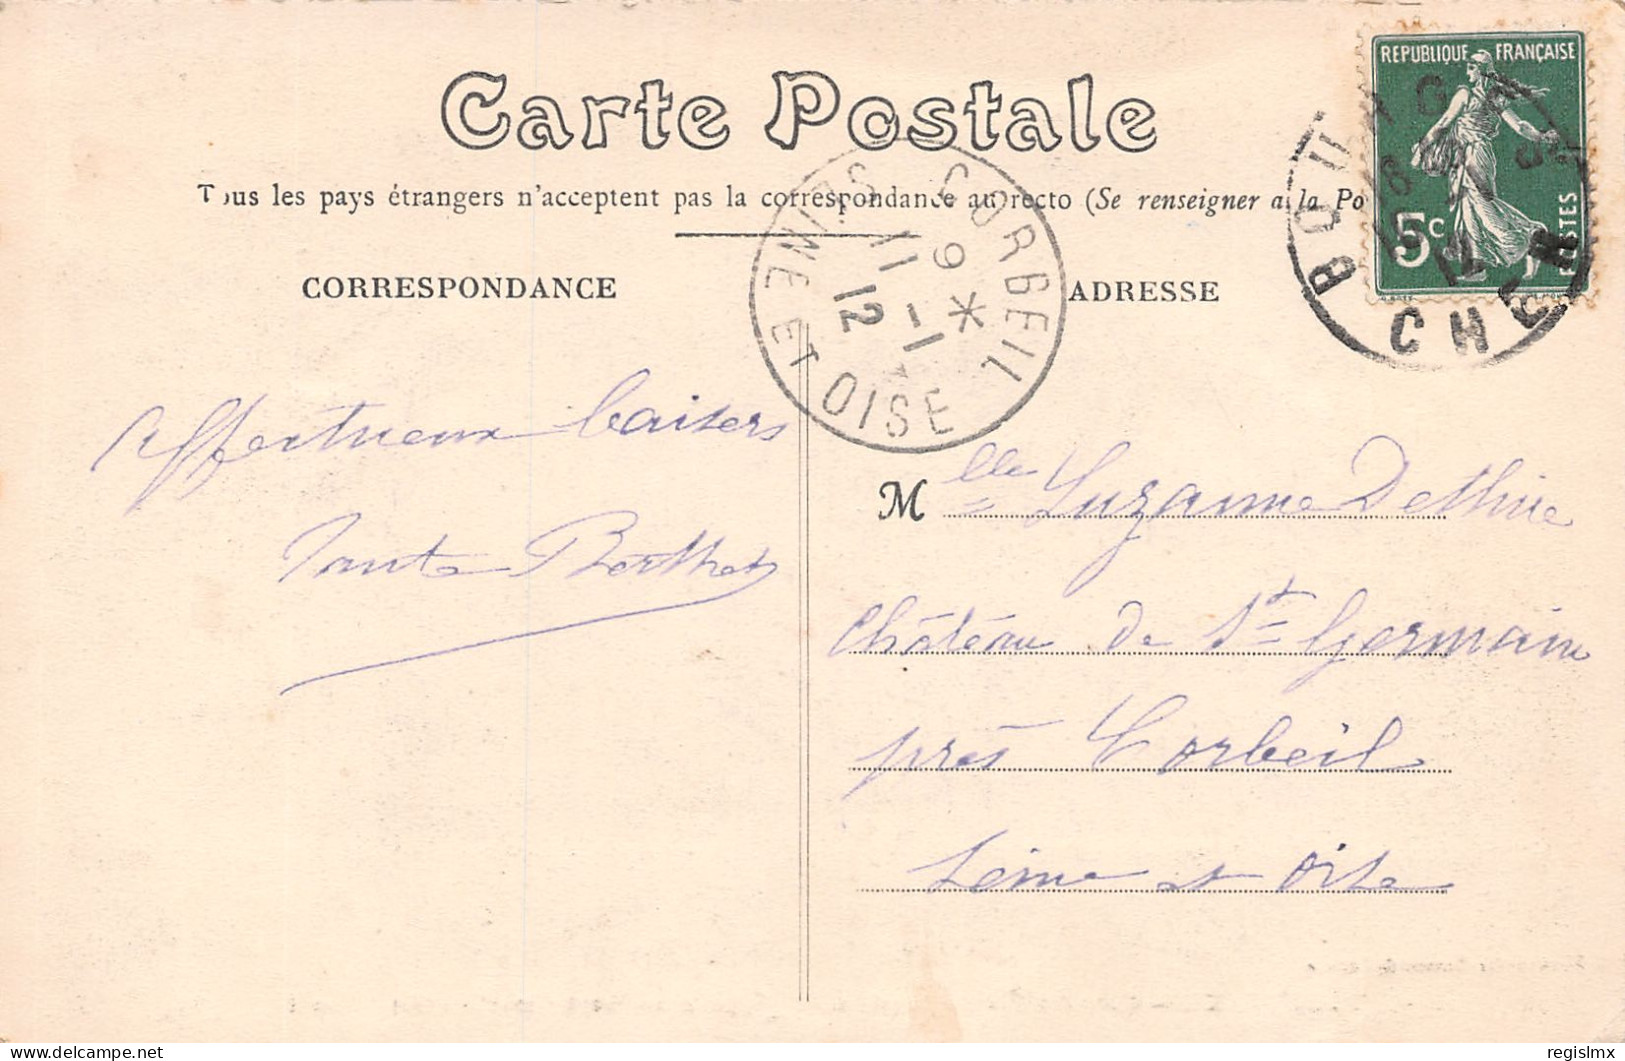 Carte Postale
Tous les pays étrangers n'acceptent pas la correspondance au recto (Se renseigner à la Po
CORRESPONDANCE
ADRESSE
REPUBLIQUE FRANÇAISE
5c
POSTES
BOURGES
CHER
CORBEIL
SEINE ET OISE
9 *
11 - 1
12
Affectueux baisers
Tante Berthe
Mlle Suzanne Dethire
Château de St Germain
près Corbeil
Seine et Oise
delcampe.net
regislmx